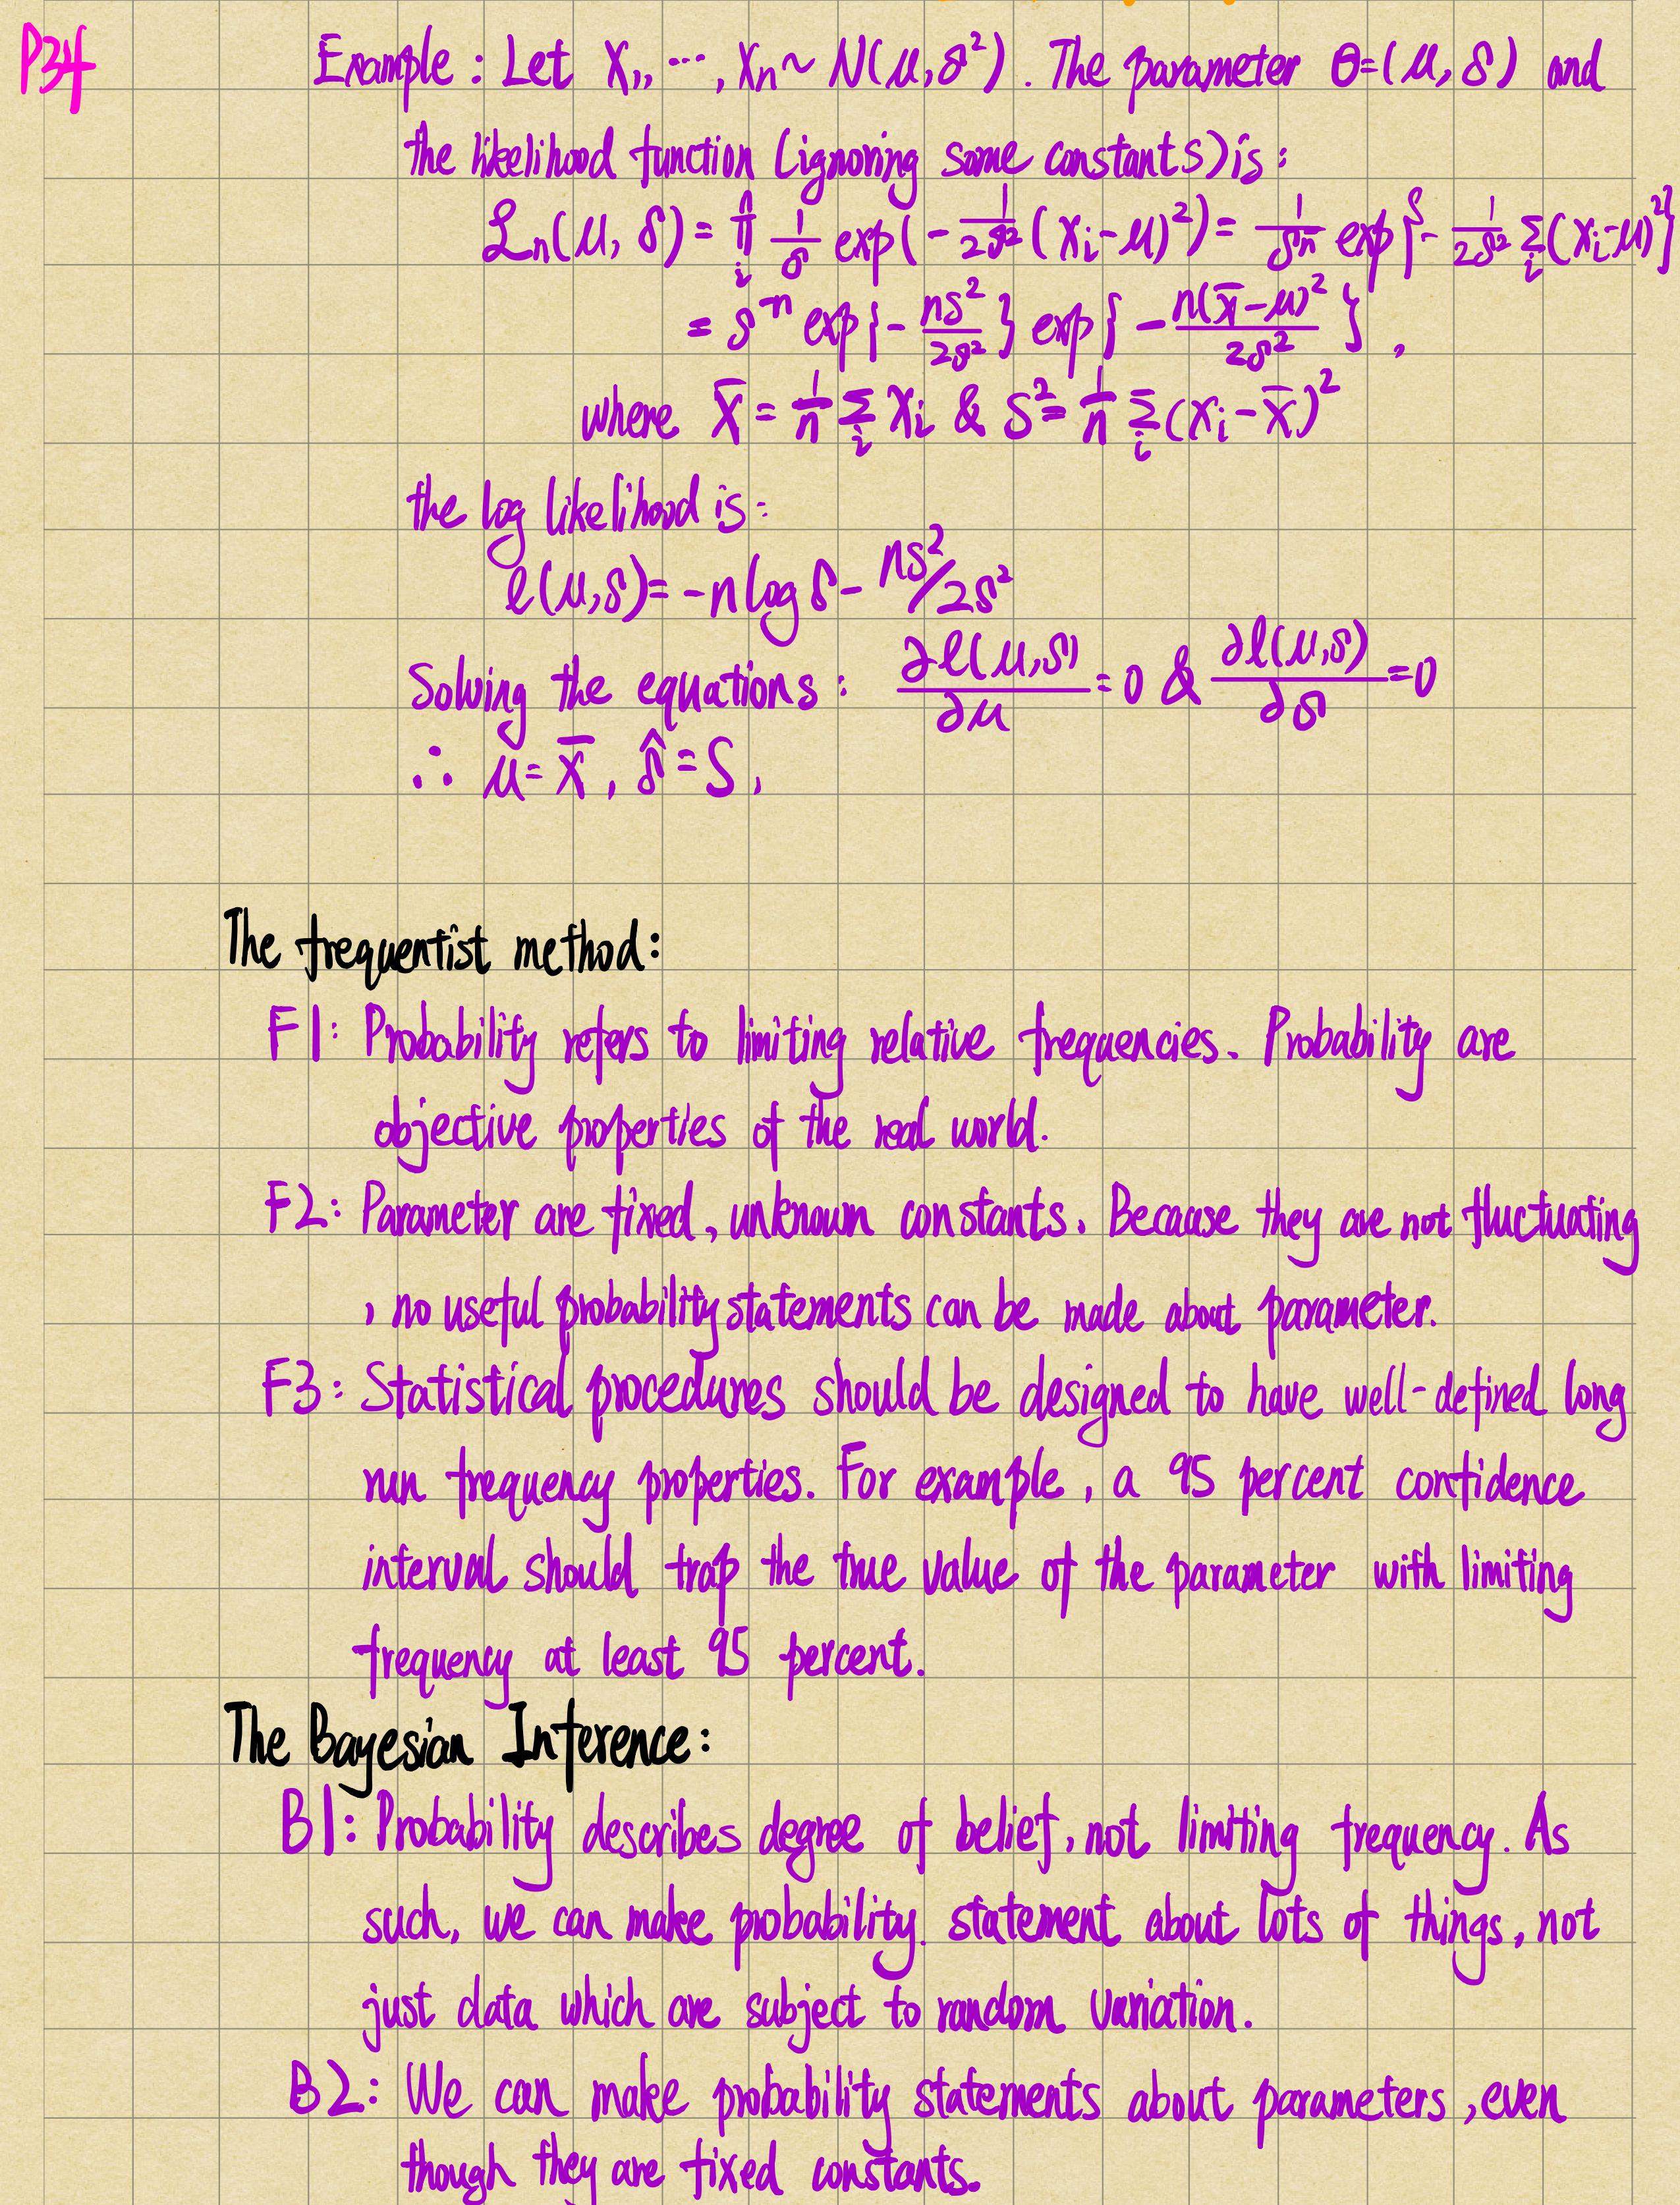 P34
Example : Let X₁, ⋯ , Xn ~ N(μ, δ²). The parameter θ=(μ, δ) and
the likelihood function (ignoring some constants) is :
ℒn(μ, δ) = ∏ᵢⁿ 1/δ exp(- 1/2δ² (Xi-μ)²) = 1/δⁿ exp{- 1/2δ² Σᵢ(Xi-μ)²}
= δ⁻ⁿ exp{- nS²/2δ²} exp{- n(X̄-μ)²/2δ²} ,
where X̄ = 1/n Σᵢ Xi & S² = 1/n Σᵢ(Xi-X̄)²
the log likelihood is :
ℓ(μ,δ) = -n log δ - nS²/2δ²
Solving the equations : ∂ℓ(μ,δ)/∂μ = 0 & ∂ℓ(μ,δ)/∂δ = 0
∴ μ = X̄, δ̂ = S,
The frequentist method :
F1: Probability refers to limiting relative frequencies. Probability are
objective properties of the real world.
F2: Parameter are fixed, unknown constants. Because they are not fluctuating
, no useful probability statements can be made about parameter.
F3: Statistical procedures should be designed to have well-defined long
run frequency properties. For example, a 95 percent confidence
interval should trap the true value of the parameter with limiting
frequency at least 95 percent.
The Bayesian Inference :
B1: Probability describes degree of belief, not limiting frequency. As
such, we can make probability statement about lots of things, not
just data which are subject to random variation.
B2: We can make probability statements about parameters, even
though they are fixed constants.